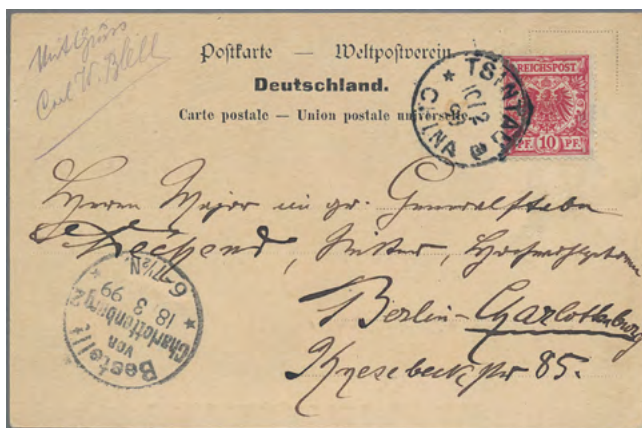 Mit Gruss
Carl W. Blell
Postkarte — Weltpostverein
Deutschland.
Carte postale — Union postale universelle
TSINTAU
10/2
99
CHINA
REICHSPOST
PF. 10 PF.
Herrn Major im gr. Generalstabe
Ritter, Hochwohlgeboren
Berlin-Charlottenburg
Knesebeckstr 85.
Bestellt
von
Charlottenburg 2
18. 3. 99
6-7½N.